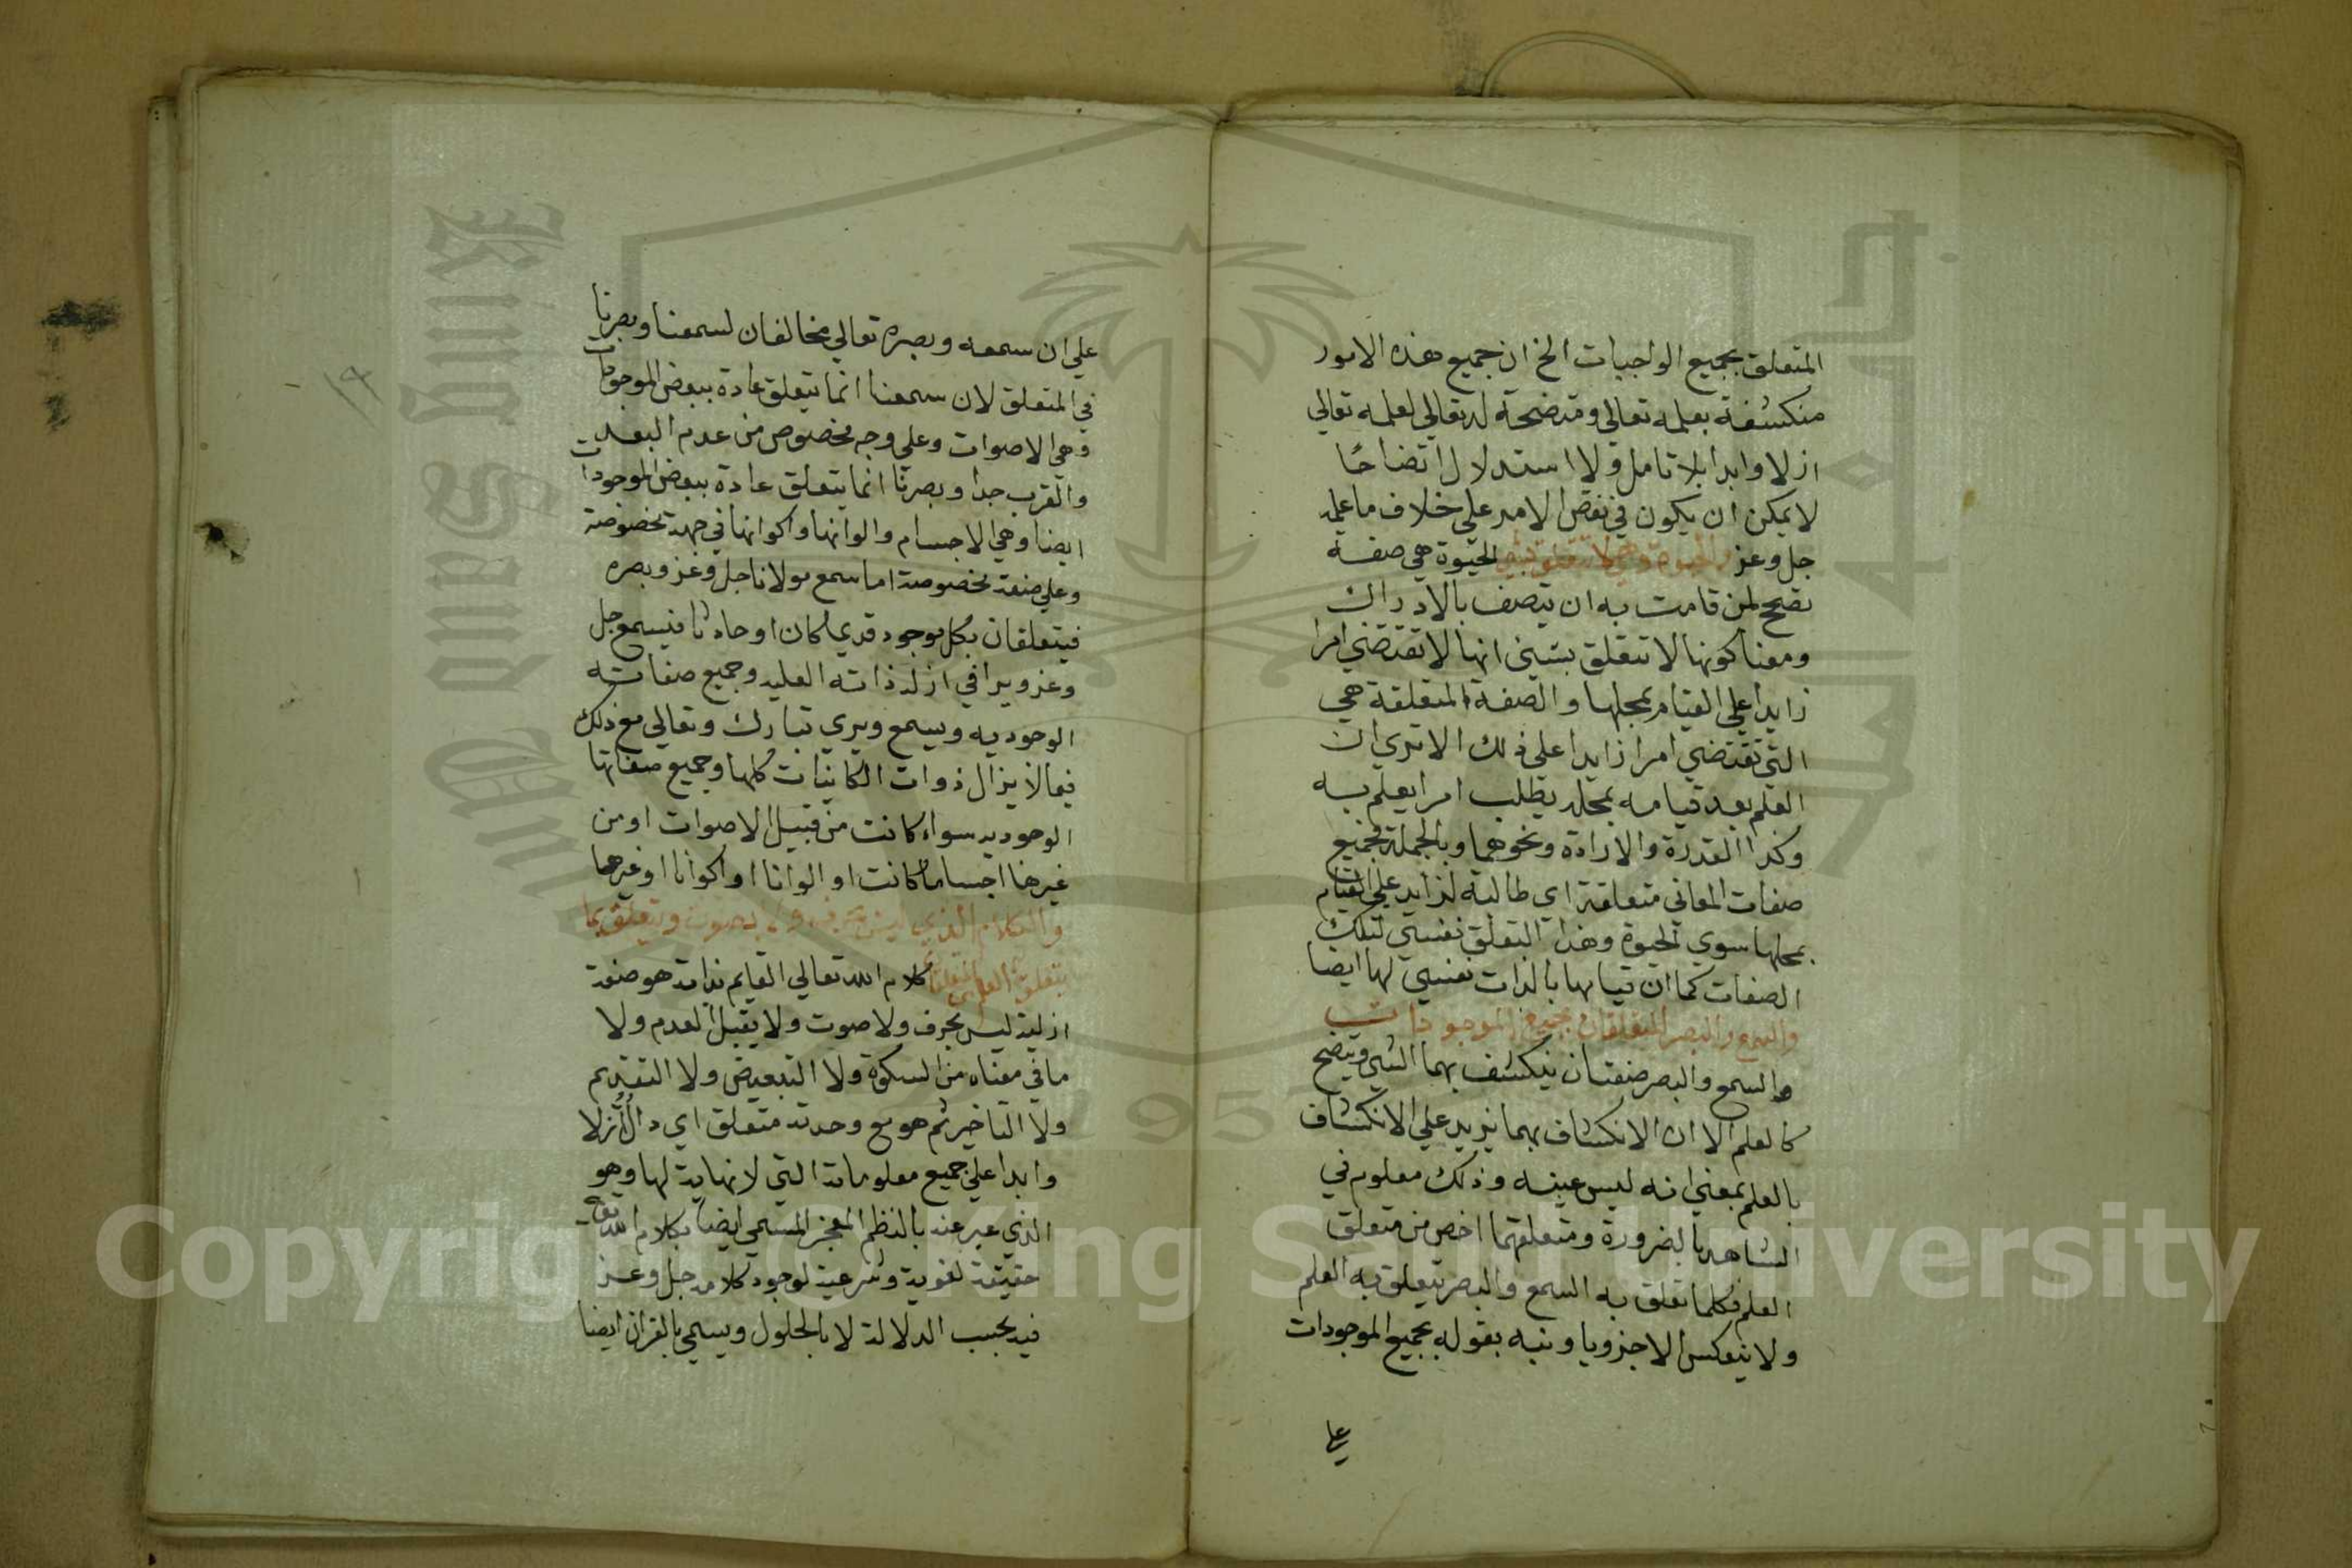 المتعلق بجميع الواجبات الخ ان جميع هذه الامور
منكشفة بعلمه تعالي ومتضحة له تعالي لعلمه تعالي
ازلا وابدا بلا تامل ولا استدلال اتضاحا
لا يمكن ان يكون في نفس الامر علي خلاف ما علمه
جل وعز والحيوة وهي لا تتعلق بشي الحيوة هي صفة
تصحح لمن قامت به ان يتصف بالادراك
ومعنا كونها لا تتعلق بشيئ انها لا تقتضي امرا
زايدا علي القيام بمحلها والصفة المتعلقة هي
التي تقتضي امرا زايدا علي ذلك الا تري ان
العلم بعد قيامه بمحله يطلب امرا يعلم به
وكذا القدرة والارادة ونحوهما وبالجملة فجميع
صفات المعاني متعلقة اي طالبة لزايد علي القيام
بمحلها سوي الحيوة وهذا التعلق نفسي لتلك
الصفات كما ان قيامها بالذات نفسي لها ايضا
والسمع والبصر المتعلقان بجميع الموجودات
والسمع والبصر صفتان ينكشف بهما الشي ويتضح
كالعلم الا ان الانكشاف بهما يزيد علي الانكشاف
بالعلم بمعني انه ليس عينه وذلك معلوم في
الشاهد بالضرورة ومتعلقهما اخص من متعلق
العلم فكلما تعلق به السمع والبصر تتعلق به العلم
ولا ينعكس الا جزويا ونبه بقوله بجميع الموجودات
علي
١٩
علي ان سمعه وبصره تعالي مخالفان لسمعنا وبصرنا
في المتعلق لان سمعنا انما يتعلق عادة ببعض الموجودات
وهي الاصوات وعلي وجه مخصوص من عدم البعد
والقرب جدا وبصرنا انما يتعلق عادة ببعض الموجودات
ايضا وهي الاجسام والوانها واكوانها في جهة مخصوصة
وعلي صفة مخصوصة اما سمع مولانا جل وعز وبصره
فيتعلقان بكل موجود قديما كان او حادثا فيسمع جل
وعز ويرا في ازله ذاته العليه وجميع صفاته
الوجوديه ويسمع ويري تبارك وتعالي مع ذلك
فيما لا يزال ذوات الكاينات كلها وجميع صفاتها
الوجوديه سواء كانت من قبيل الاصوات او من
غيرها اجساما كانت او الوانا او اكوانا او غيرها
والكلام الذي ليس بحرف ولا بصوت ويتعلق بما
يتعلق به العلم من المتعلقات كلام الله تعالي القايم بذاته هو صفة
ازلية ليس بحرف ولا صوت ولا يقبل العدم ولا
ما في معناه من السكوة ولا التبعيض ولا التقديم
ولا التاخير ثم هو مع وحدته متعلق اي دال ازلا
وابدا علي جميع معلوماته التي لا نهاية لها وهو
الذي عبر عنه بالنظم المعجز المسمي ايضا بكلام الله تع
حقيقة لغوية وشرعية لوجود كلامه جل وعز
فيه بحسب الدلالة لا بالحلول ويسمي بالقران ايضا
Copyright © King Saud University